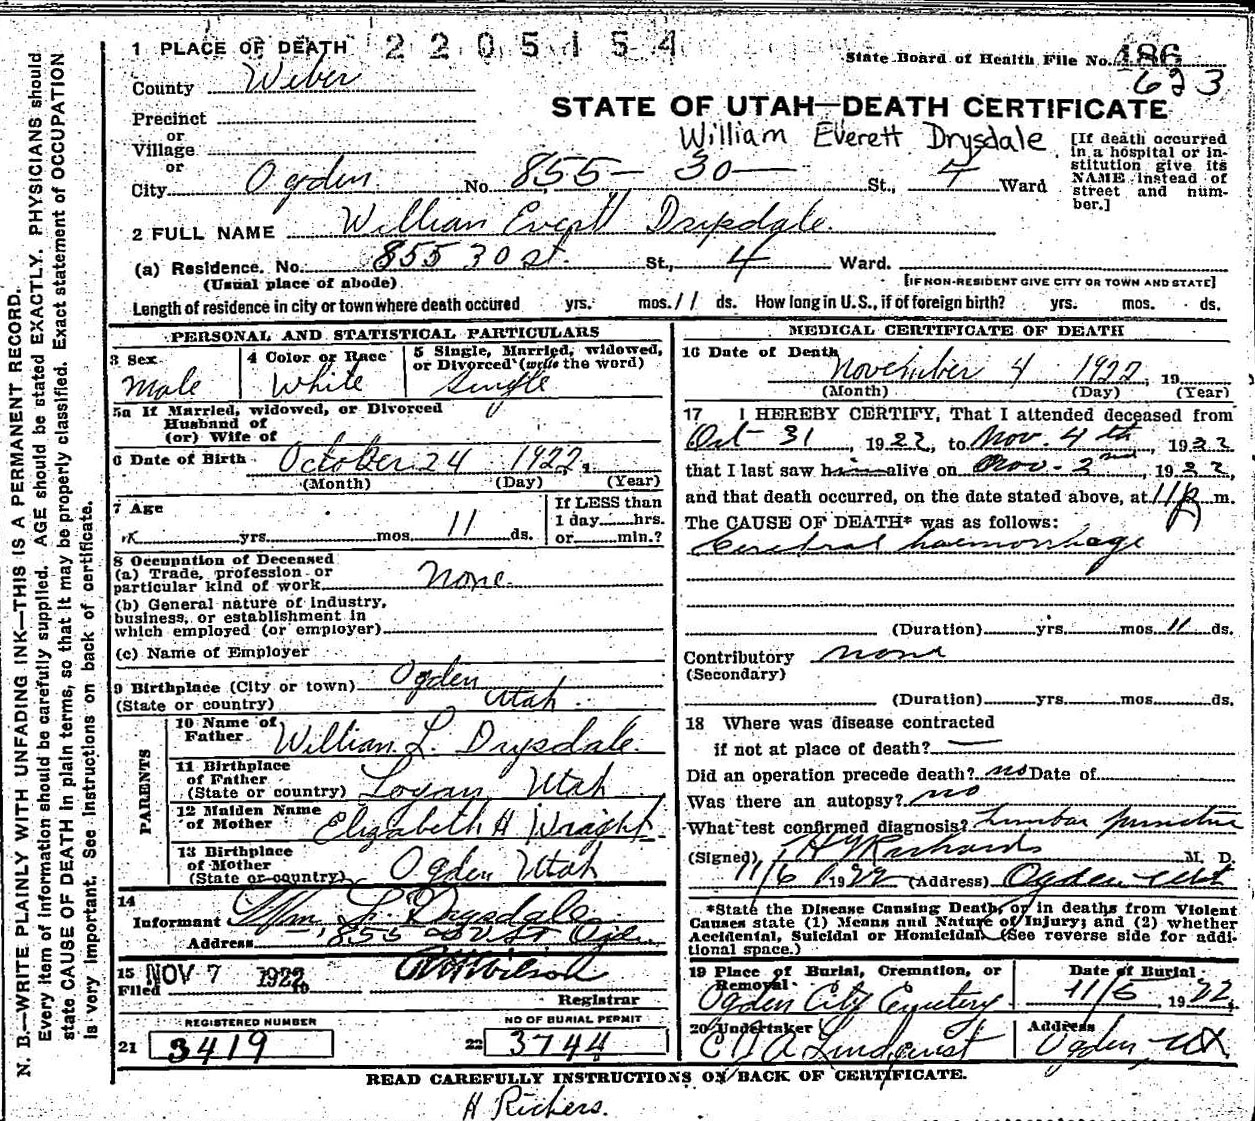 1 PLACE OF DEATH 2205154
State Board of Health File No. 486
County Weber
623
Precinct
STATE OF UTAH—DEATH CERTIFICATE
or
Village
William Everett Drysdale
[If death occurred in a hospital or institution give its NAME instead of street and number.]
or
City Ogden No. 855- 30- St., 4 Ward
2 FULL NAME William Everett Drysdale.
(a) Residence. No. 855 30 st. St., 4 Ward.
(Usual place of abode) [IF NON-RESIDENT GIVE CITY OR TOWN AND STATE]
Length of residence in city or town where death occured yrs. mos. 11 ds. How long in U.S., if of foreign birth? yrs. mos. ds.
PERSONAL AND STATISTICAL PARTICULARS
3 Sex 4 Color or Race 5 Single, Married, widowed,
or Divorced (write the word)
Male White Single
5a If Married, widowed, or Divorced
Husband of
(or) Wife of
6 Date of Birth October 24 1922.
(Month) (Day) (Year)
7 Age If LESS than
1 day hrs.
yrs. mos. 11 ds. or min.?
8 Occupation of Deceased
(a) Trade, profession or
particular kind of work none.
(b) General nature of industry,
business, or establishment in
which employed (or employer)
(c) Name of Employer
9 Birthplace (City or town) Ogden
(State or country) Utah.
PARENTS
10 Name of
Father William. L. Drysdale.
11 Birthplace
of Father
(State or country) Logan Utah
12 Maiden Name
of Mother Elizabeth H Wright
13 Birthplace
of Mother
(State or country) Ogden Utah
14
Informant Wm L Drysdale.
Address 855 30 st Ogden
15 NOV 7 1922
Filed
Registrar
REGISTERED NUMBER NO OF BURIAL PERMIT
21 3419 22 3744
MEDICAL CERTIFICATE OF DEATH
16 Date of Death
November 4 1922, 19
(Month) (Day) (Year)
17 I HEREBY CERTIFY, That I attended deceased from
Oct 31, 1922, to Nov. 4th, 1922
that I last saw him alive on Nov- 2nd, 1922,
and that death occurred, on the date stated above, at 11 p m.
The CAUSE OF DEATH* was as follows:
Cerebral haemorrhage
(Duration) yrs. mos. 11 ds.
Contributory none
(Secondary)
(Duration) yrs. mos. ds.
18 Where was disease contracted
if not at place of death? —
Did an operation precede death? no Date of
Was there an autopsy? no
What test confirmed diagnosis? Lumbar puncture
(Signed) Richards M. D.
11/6 1922 (Address) Ogden Utah
*State the Disease Causing Death, or in deaths from Violent
Causes state (1) Means and Nature of Injury; and (2) whether
Accidental, Suicidal or Homicidal. (See reverse side for addi-
tional space.)
19 Place of Burial, Cremation, or
Removal
Date of Burial
Ogden City Cemetery 11/5, 1922.
20 Undertaker Address
Lindquist Ogden, Ut.
READ CAREFULLY INSTRUCTIONS ON BACK OF CERTIFICATE.
H Richers.
N. B.—WRITE PLAINLY WITH UNFADING INK—THIS IS A PERMANENT RECORD.
Every item of information should be carefully supplied. AGE should be stated EXACTLY. PHYSICIANS should
state CAUSE OF DEATH in plain terms, so that it may be properly classified. Exact statement of OCCUPATION
is very important. See instructions on back of certificate.